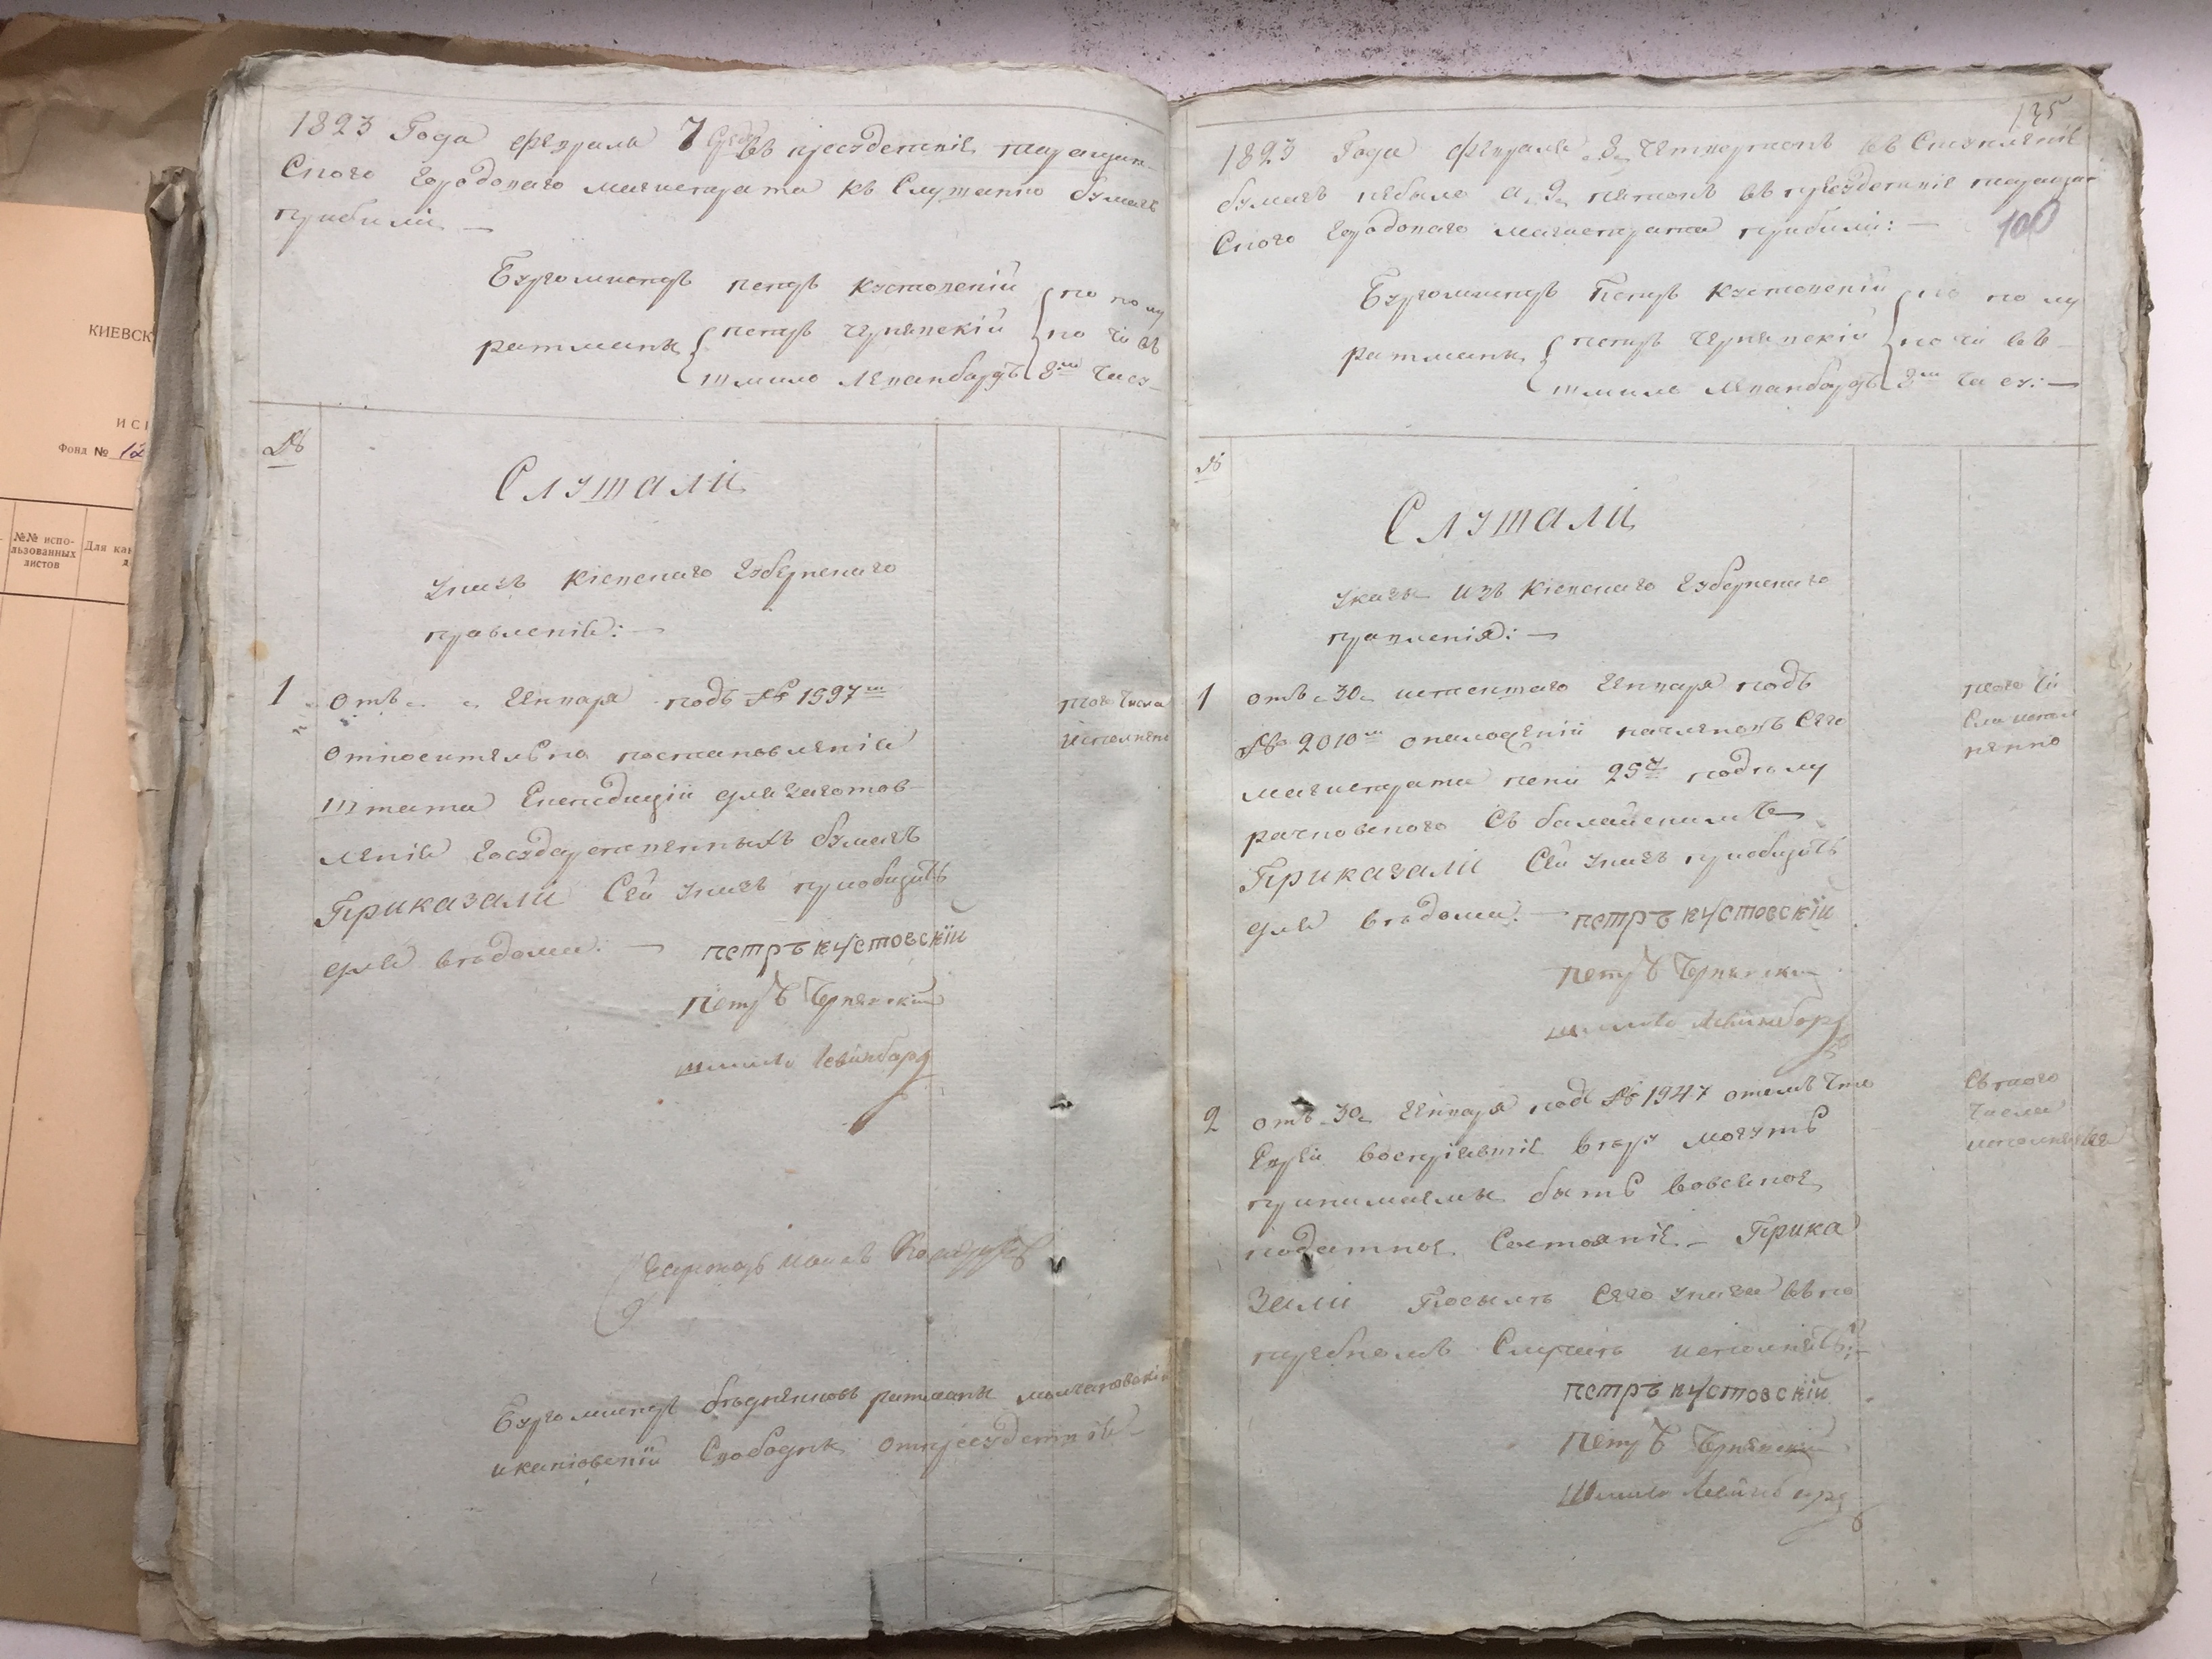 КИЕВСК
ИСП
Фонд № 12
№№ испо-
льзованных
листов
Для как
1823 Года февраля 7 Среда въ присудствіе таращан-
ского городоваго магистрата къ Слушанію бумагъ
прибыли —
Бургомистръ петръ кустовскій по полу
ратманы петръ чернявскій по чи въ
шмило Левинбордъ 8м часу
№
Слушали
указъ кіевскаго губернскаго
правленія: —
1 отъ Генваря подъ № 1597м
относительно постановленія
штата Експедиціи для заготов-
ленія государственныхъ бумагъ
Приказали Сей указъ пріобщить
для вѣдома: — петръ кустовскій
Петръ Чернявский
шмило Левинборд
того числа
исполнено
Секретарь
Бургомистръ ратманы
Свободны отприсудствія
135
100
1823 Года февраля 8 четвергокъ въ Вступленіе
бумагъ небыло а 9 пятокъ въ присудствіе тараща
Ского городоваго магистрата прибыли: —
Бургомистръ Петръ кустовскій по полу
ратманы петръ чернявскій по чи въ
шмило Левинбордъ 8м часу: —
№
Слушали
указы изъ кіевскаго губернскаго
правленія: —
1 отъ 30 истекшаго Генваря подъ
№ 2010м оналоженіи начленовъ Сего
магистрата пени 25 подѣлу
Съ
Приказали Сей указъ пріобщить
для вѣдома: — петръ кустовскій
Петръ Чернявский
шмило Левинборд
того чи
сла испол
ненно
2 отъ 30 Генваря под № 1947 отомъ что
Евреи воспріявшіе вѣру могутъ
принимаемы быть вовсякое
податное Состояніе — Прика
зали Посылѣ Сего указа въпо
требномъ Случаѣ исполнять: —
петръ кустовскій
Петръ Чернявский
Шмило Левинборд
Съ того
числа
исполняется